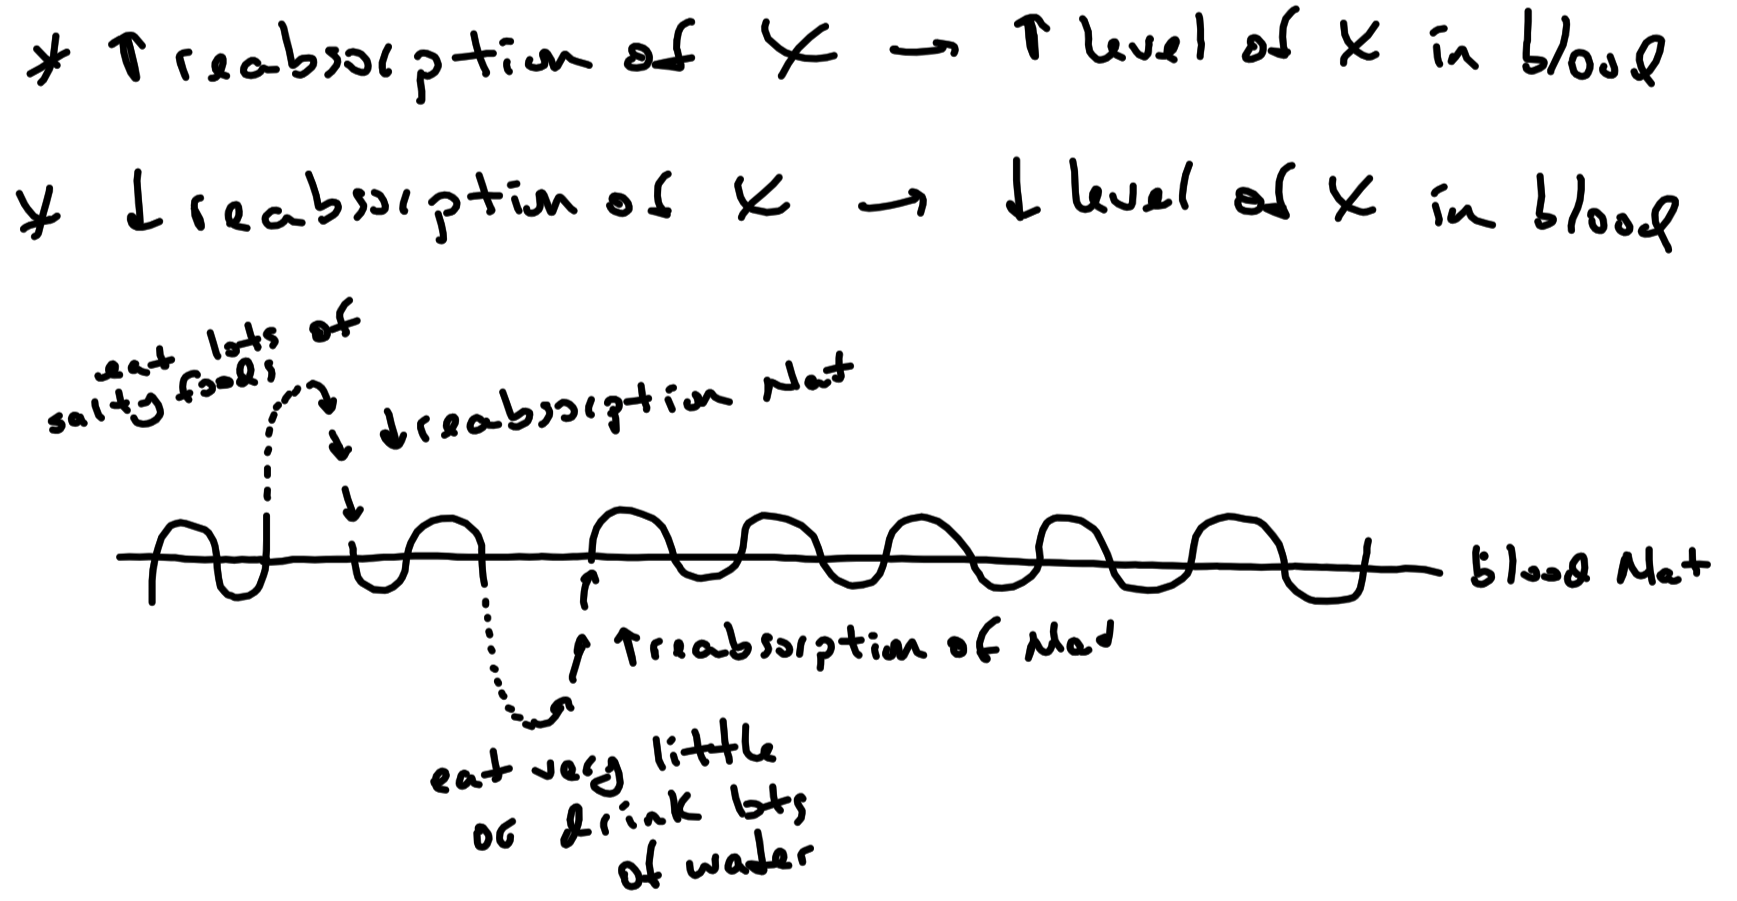 * ↑ reabsorption of X → ↑ level of X in blood
* ↓ reabsorption of X → ↓ level of X in blood
eat lots of
salty foods
↓ reabsorption Na+
blood Na+
↑ reabsorption of Na+
eat very little
or drink lots
of water